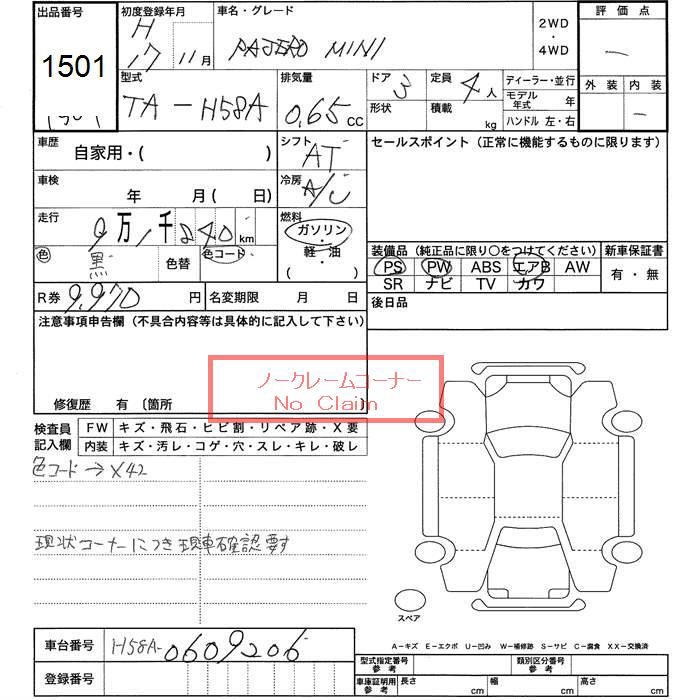 出品番号
1501
初度登録年月
H
17 11月
車名・グレード
PAJERO MINI
2WD
・
4WD
評価点
—
外装 内装
—
型式
TA-H58A
排気量
0.65 cc
ドア 3
形状
定員 4 人
積載 kg
ディーラー・並行
モデル年式 年
ハンドル 左・右
車歴
自家用・( )
シフト
AT
セールスポイント (正常に機能するものに限ります)
車検
年 月 ( 日)
冷房
A/C
走行
9万 1千 240 km
燃料
ガソリン
・
軽・油
( )
色
黒
色替
色コード
装備品 (純正品に限り○をつけてください)
新車保証書
PS PW ABS エアB AW
SR ナビ TV カワ
有・無
R券 9,970 円
名変期限 月 日
後日品
注意事項申告欄 (不具合内容等は具体的に記入して下さい)
ノークレームコーナー
No Claim
修復歴 有 〔箇所
検査員
記入欄
FW キズ・飛石・ヒビ割・リペア跡・X要
内装 キズ・汚レ・コゲ・穴・スレ・キレ・破レ
色コード→X42
現状コーナーにつき現車確認要す
スペア
車台番号
H58A-0609206
登録番号
A-キズ E-エクボ U-凹み W-補修跡 S-サビ C-腐食 XX-交換済
型式指定番号
参考
類別区分番号
参考
車庫証明用
参考
長さ cm 幅 cm 高さ cm